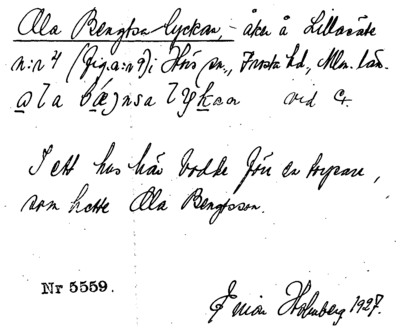 Ola Bengtsa lyckan, - åker å Lillasäte
n:r 4 (fig. a:n 9) i Hörs sn., Frosta hd, Mlm. län.
ola bæŋsa lykan vid G.
I ett hus här bodde förr en torpare,
som hette Ola Bengtsson.
Nr 5559.
Holmberg 1927.